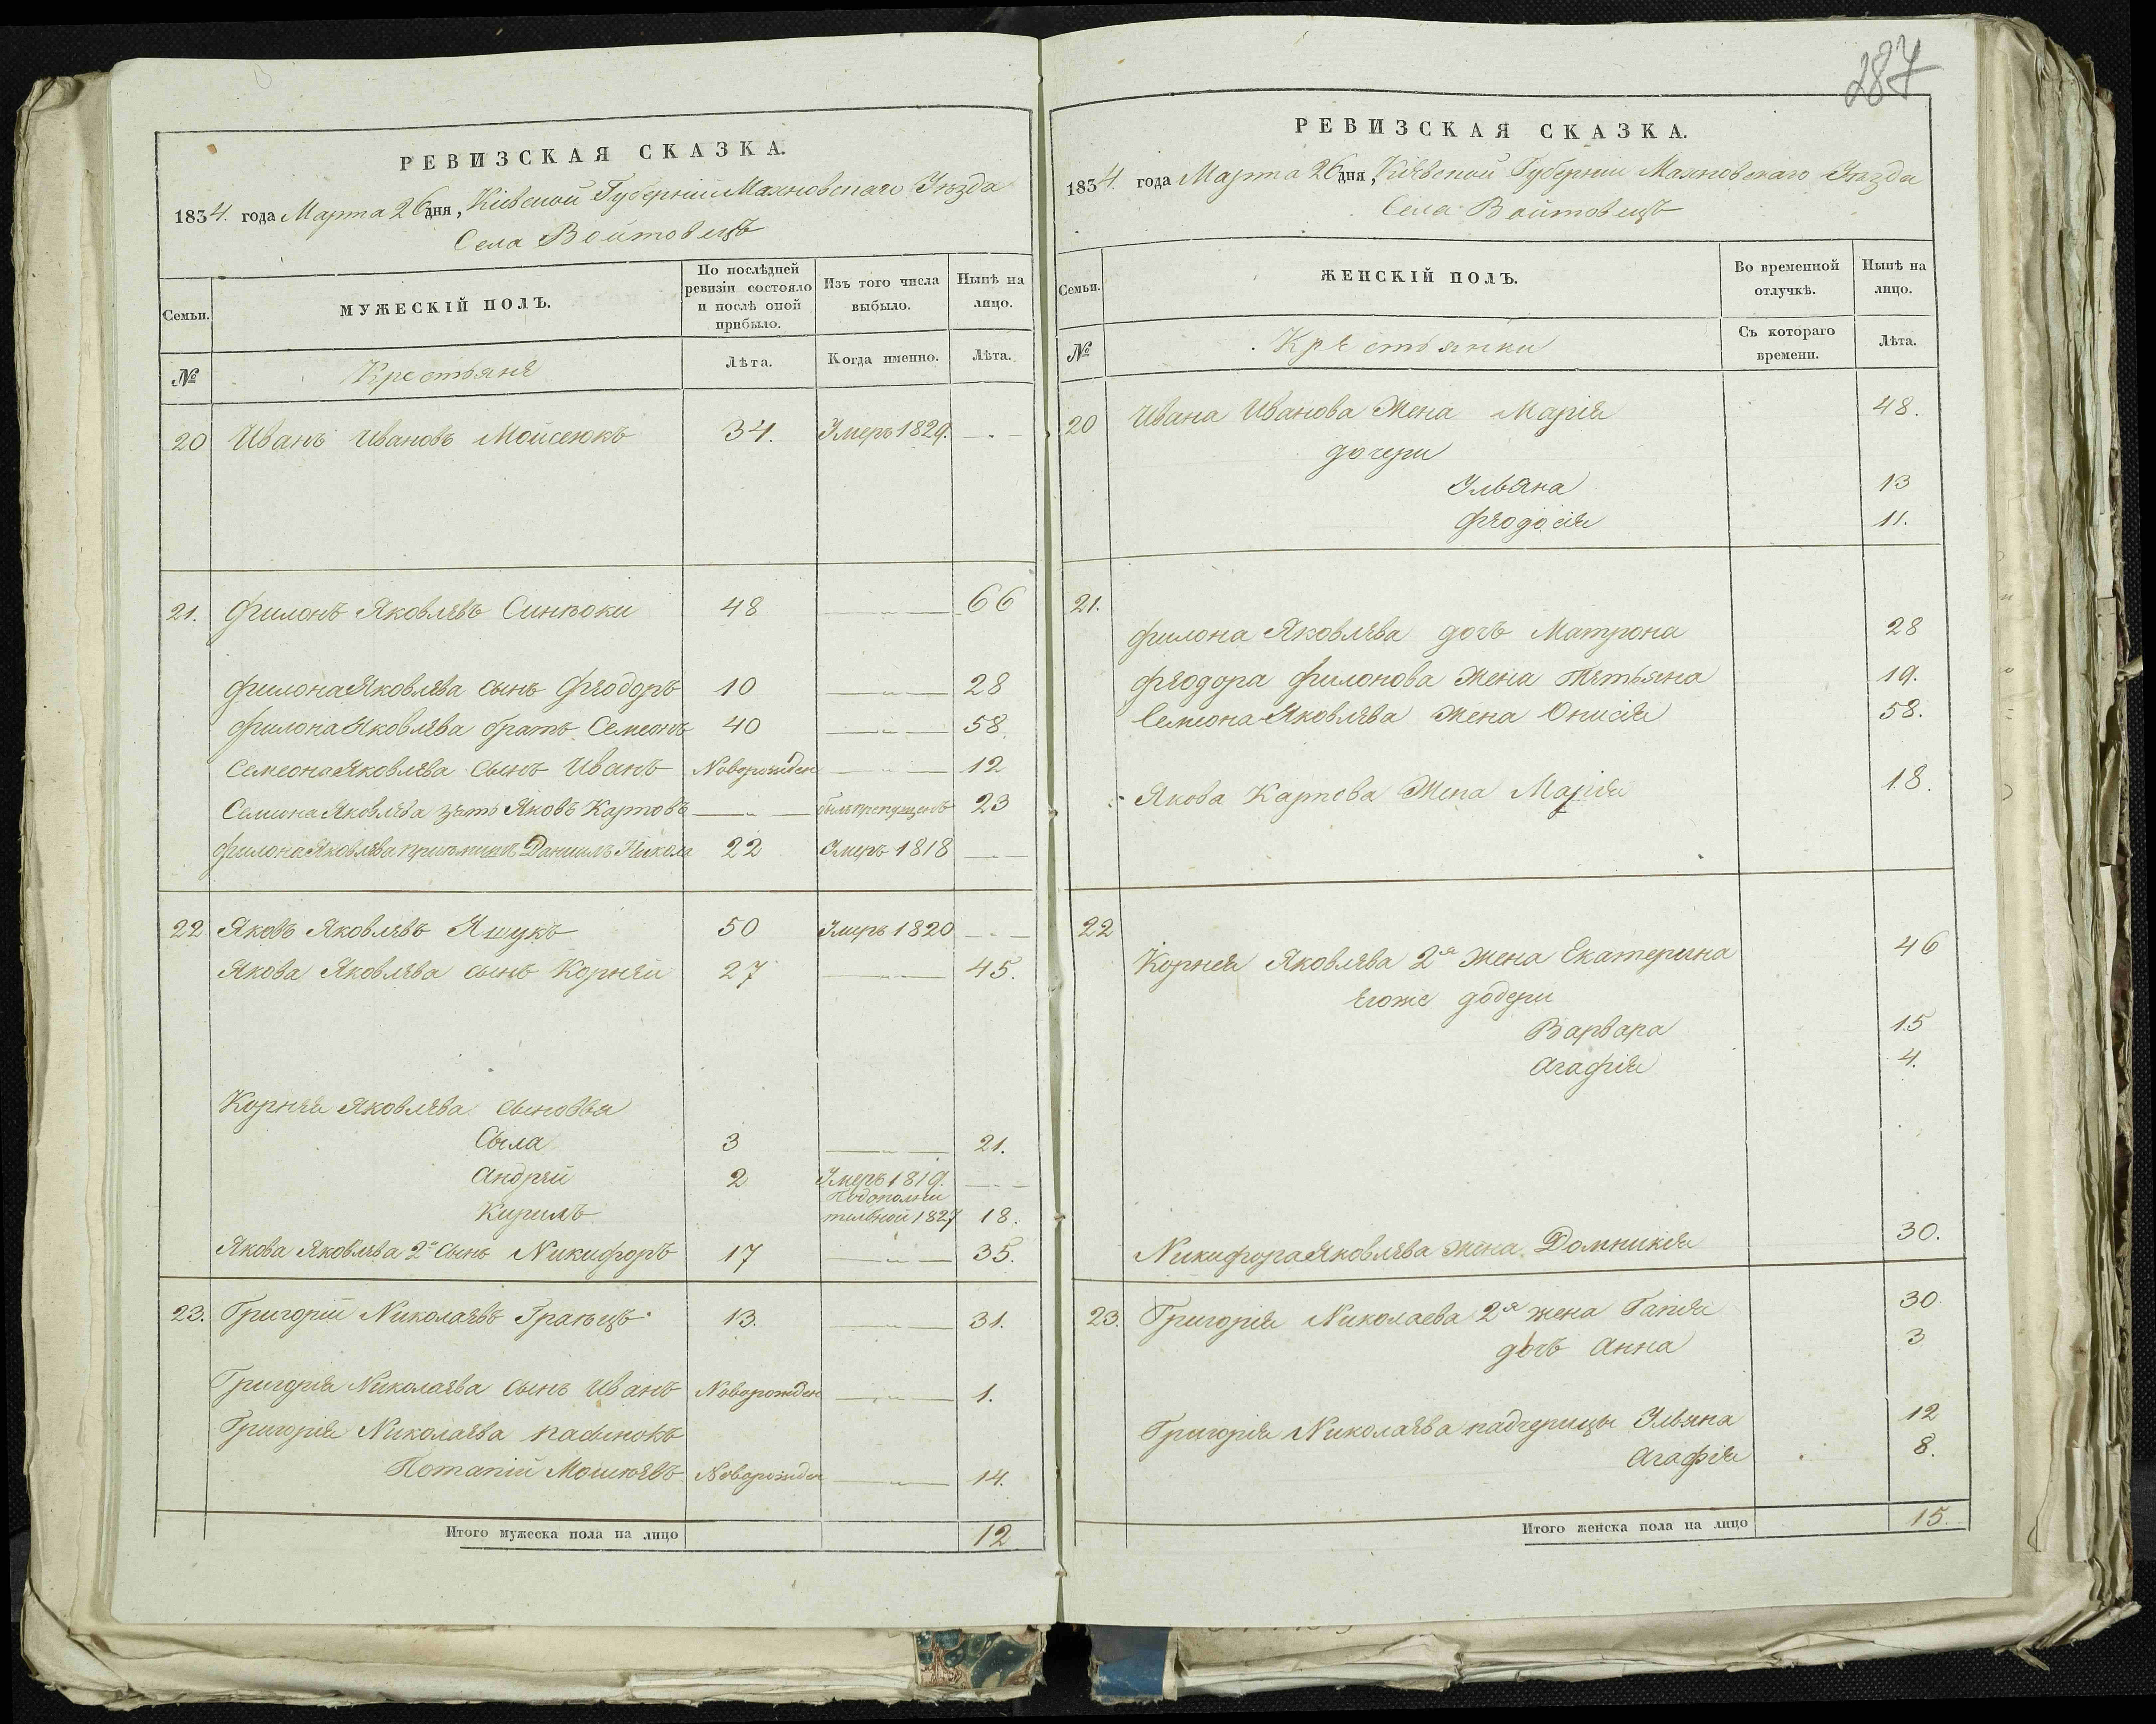 РЕВИЗСКАЯ СКАЗКА.
1834. года Марта 26 дня, Кіевской Губерніи Махновскаго Уѣзда
Села Войтовецъ
Семьи.
МУЖЕСКІЙ ПОЛЪ.
По послѣдней ревизіи состояло и послѣ оной прибыло.
Изъ того числа выбыло.
Нынѣ на лицо.
№
Крестьяне
Лѣта.
Когда именно.
Лѣта.
20 Иванъ Ивановъ Мойсеюкъ 34. Умеръ 1829. — . —
21. Филонъ Яковлевъ Синѣоки 48 — „ — 66
Филона Яковлева сынъ Феодоръ 10 — „ — 28
Филона Яковлева братъ Семеонъ 40 — „ — 58.
Семеона Яковлева сынъ Иванъ Новорожден — „ — 12
Семиона Яковлева зять Яковъ Карповъ — „ — былъ пропущенъ 23
Филона Яковлева приемышъ Даниилъ Никола 22 Умеръ 1818 — —
22 Яковъ Яковлевъ Яшукъ 50 Умеръ 1820 — . —
Якова Яковлева сынъ Корней 27 — „ — 45.
Корнея Яковлева сыновья
Сыла 3 — „ — 21.
Андрей 2 Умеръ 1819. — —
Кирилъ Подополнительной 1827 18.
Якова Яковлева 2й сынъ Никифоръ 17 — „ — 35.
23. Григорій Николаевъ Гратецъ 13. — „ — 31.
Григорія Николаева сынъ Иванъ Новорожден — „ — 1.
Григорія Николаева пасынокъ
Потапій Мошкевъ Новорожден — „ — 14.
Итого мужеска пола на лицо 12
287
РЕВИЗСКАЯ СКАЗКА.
1834. года Марта 26 дня, Кіевской Губерніи Махновскаго Уѣзда
Села Войтовецъ
Семьи.
ЖЕНСКІЙ ПОЛЪ.
Во временной отлучкѣ.
Нынѣ на лицо.
№
Крестьянки
Съ котораго времени.
Лѣта.
20 Ивана Иванова жена Марія 48.
дочери
Ульяна 13
Феодосія 11.
21.
Филона Яковлева дочъ Матрона 28
Феодора Филонова жена Тетьяна 19.
Семеона Яковлева жена Онисія 58.
Якова Карпова жена Марія 18.
22
Корнея Яковлева 2я жена Екатерина 46
егоже дочери
Варвара 15
Агафія 4.
Никифора Яковлева жена Домникія 30.
23. Григорія Николаева 2я жена Гапія 30.
дочъ Анна 3
Григорія Николаева падчерицы Ульяна 12
Агафія 8.
Итого женска пола на лицо 15.